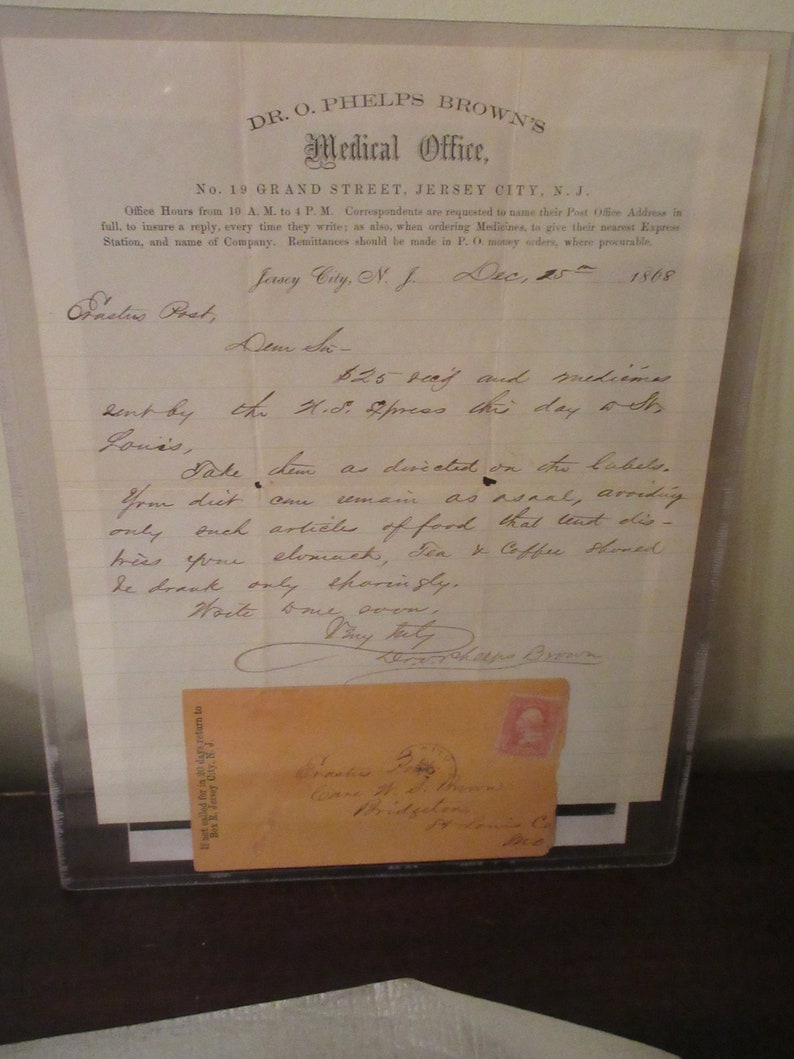 DR. O. PHELPS BROWN'S
Medical Office,
No. 19 GRAND STREET, JERSEY CITY, N. J.
Office Hours from 10 A. M. to 4 P. M. Correspondents are requested to name their Post Office Address in
full, to insure a reply, every time they write; as also, when ordering Medicines, to give their nearest Express
Station, and name of Company. Remittances should be made in P. O. money orders, where procurable.
Jersey City, N. J. Dec, 25th 1868
Erastus Post,
Dear Sir-
$25 rec'd and medicines
sent by the U.S. Express this day to St.
Louis,
Take them as directed on the labels.
Your diet can remain as usual, avoiding
only such articles of food that tend dis-
tress your stomach, Tea & Coffee should
be drank only sparingly.
Write soon.
Very truly
Dr. O. Phelps Brown
If not called for in 20 days, return to
Box R. Jersey City, N. J.
Erastus Post
Care W. S. Brown
Bridgeton
St Louis Co
Mo